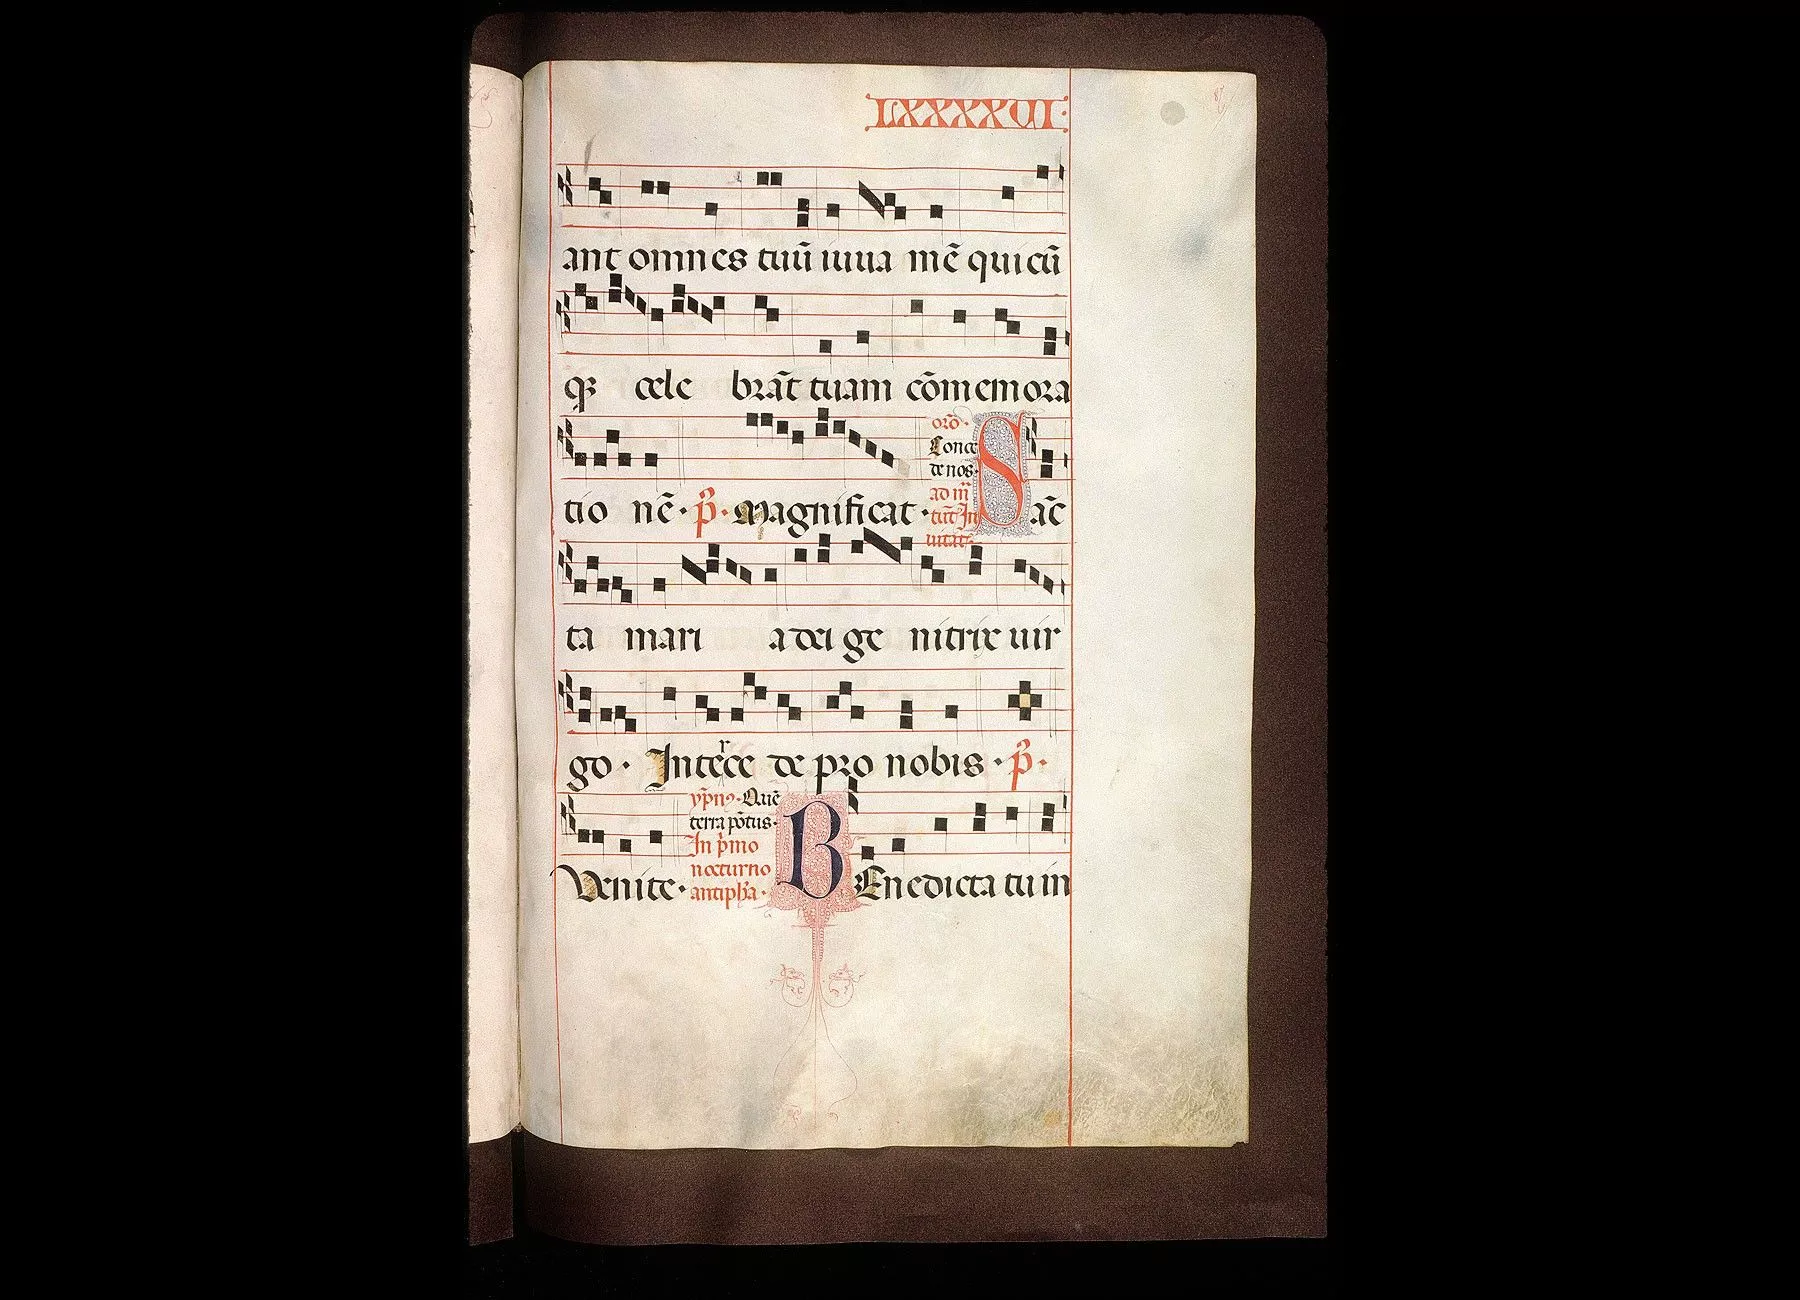 LXXXXVI
ant omnes tuū iuua mē quicū
qȝ cele brāt tuam cōmemora
tio nē · p̄ · Magnificat ·
orō ·
Conce
de nos ·
ad m̄
tut̄ In
uitat̄
Sāc
ta mari a dei ge nitrix uir
go · Interce de pro nobis · p̄ ·
Venite ·
yp̄nꝰ · Quē
terra pōtus ·
In p̄mo
nocturno
antiph̄a ·
BEnedicta tu in